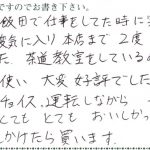 ですのでお書き下さい。
飯田で仕事をしてた時に
気に入り本店まで2度
た 茶道教室をしているの
使い 大変好評でした
チョイス、運転しながら
とても とても おいしかっ
しかけたら買います.